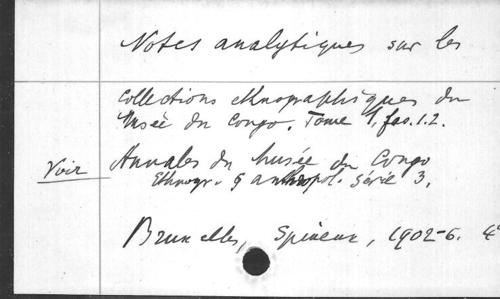 Notes analytiques sur les
collections ethnographiques du
Musée du Congo. Tome 1, fas. 1.2.
Voir Annales du Musée du Congo
Ethnogr. & anthropol. Série 3.
Bruxelles, Spineux, 1902-6. 4°